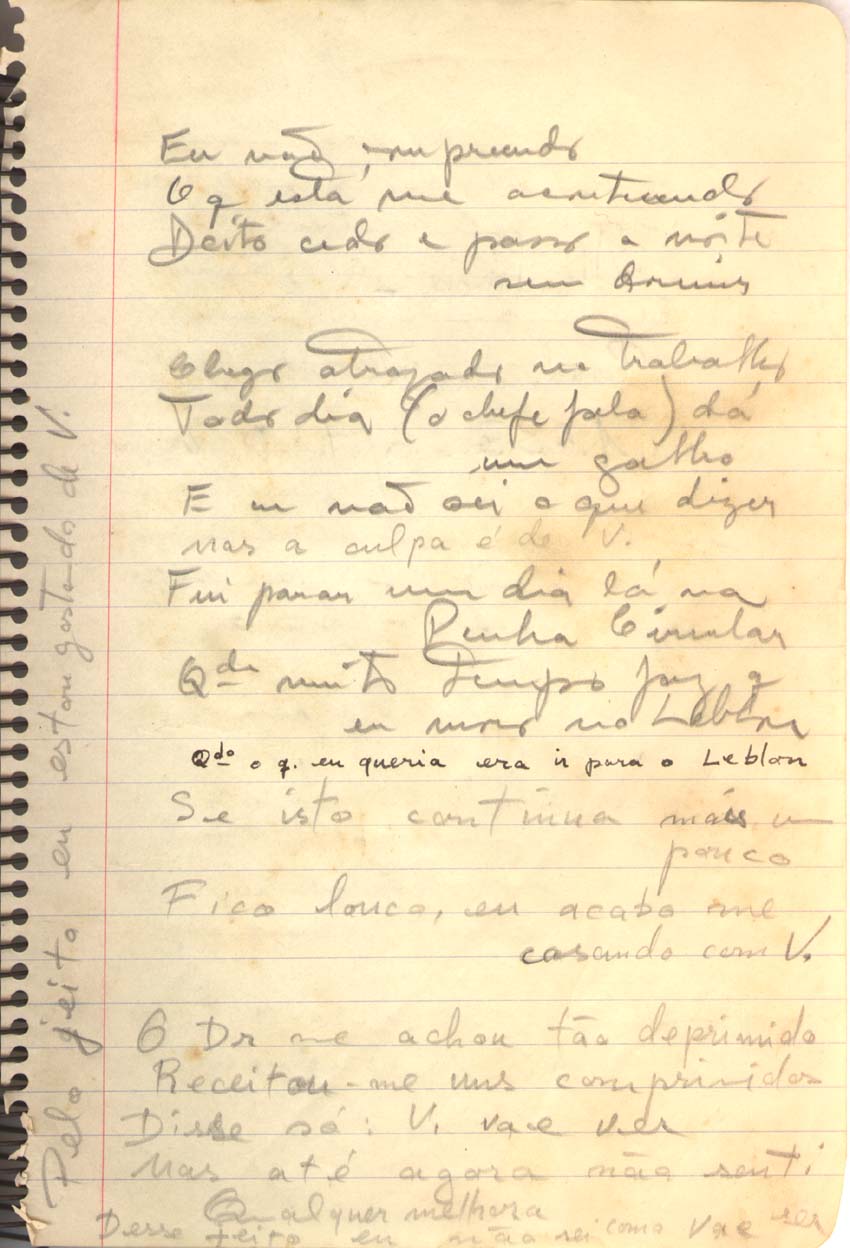 Eu não compreendo
O q está me acontecendo
Deito cedo e passo a noite
sem dormir
Chego atrazado no trabalho
Todo dia (o chefe fala) dá
um galho
E eu não sei o que dizer
Mas a culpa é de V.
Fui parar um dia lá na
Penha Circular
Qdo muito tempo faz q
eu moro no Leblon
Qdo o q. eu queria era ir para o Leblon
Se isto continua mais um
pouco
Fico louco, eu acabo me
casando com V.
O Dr me achou tão deprimido
Receitou-me uns comprimidos
Disse só: V. vae ver
Mas até agora não senti
Qualquer melhora
Desse jeito eu não sei como vae ser
Pelo jeito eu estou gostando de V.